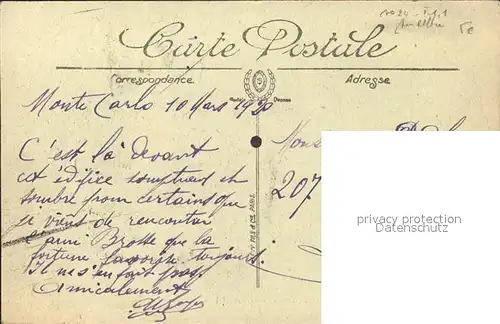 Carte Postale
Correspondance
Adresse
Monte Carlo 10 Mars 1920
Mons
207
C'est là devant
cet édifice somptueux et
sombre pour certains que
je viens de rencontrer
l'ami Brosse que la
fortune favorise toujours.
Il ne s'en fait pas
Amicalement
privacy protection
Datenschutz